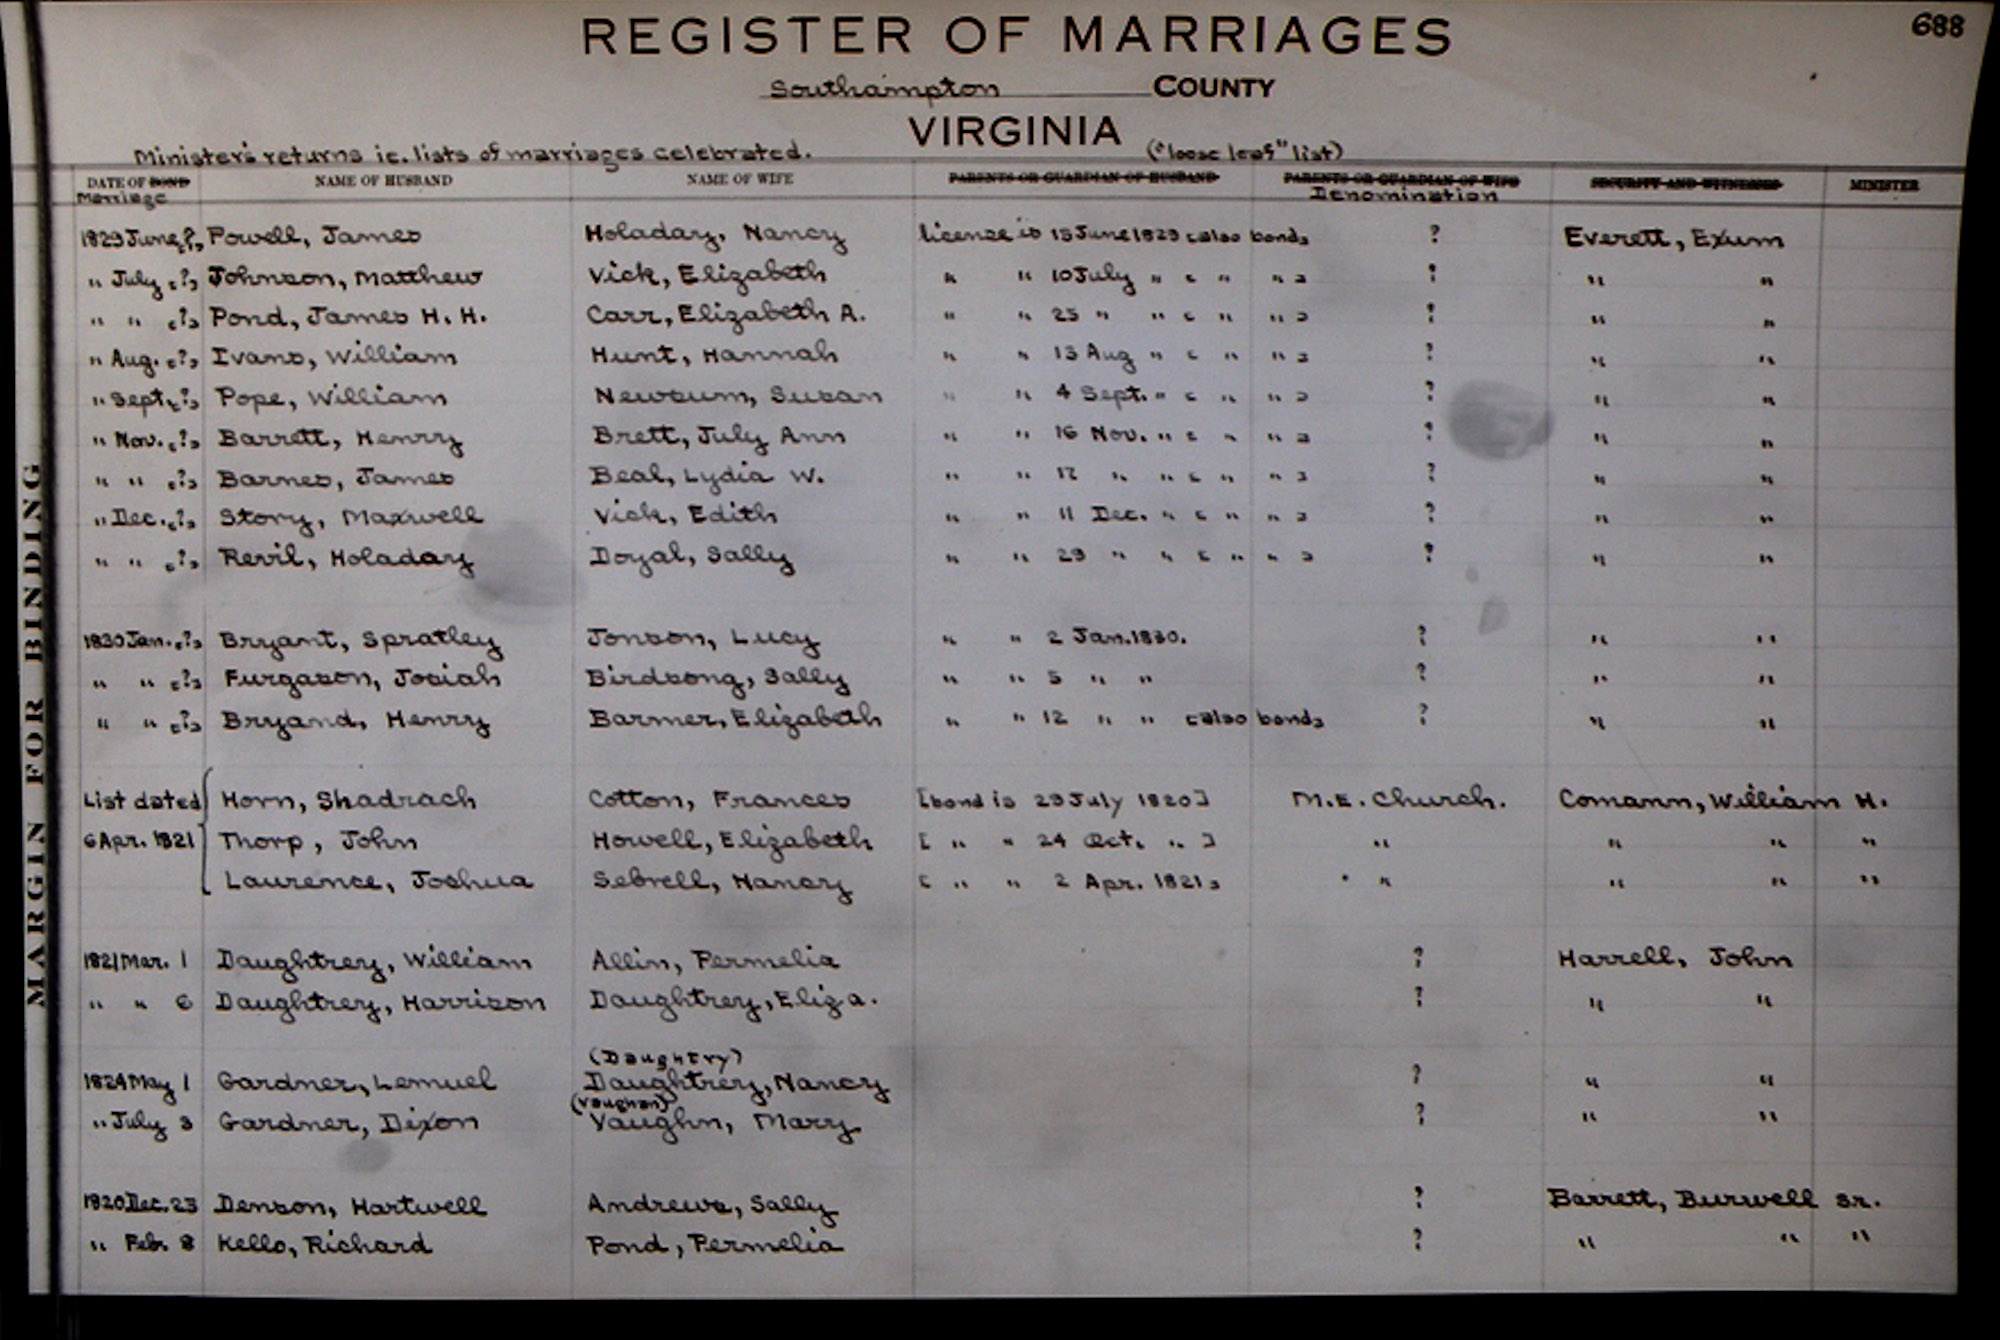 688
REGISTER OF MARRIAGES
Southampton COUNTY
VIRGINIA
Minister's returns ie. lists of marriages celebrated. ("loose leaf" list)
DATE OF BOND NAME OF HUSBAND NAME OF WIFE PARENTS OR GUARDIAN OF HUSBAND PARENTS OR GUARDIAN OF WIFE SECURITY AND WITNESSES MINISTER
Marriage Denomination
1829 June [?] Powell, James Holaday, Nancy license is 15 June 1829 [also bond] ? Everett, Exum
" July [?] Johnson, Matthew Vick, Elizabeth " " 10 July " [ " " ] ? " "
" " [?] Pond, James H. H. Carr, Elizabeth A. " " 25 " " [ " " ] ? " "
" Aug. [?] Ivans, William Hunt, Hannah " " 13 Aug " [ " " ] ? " "
" Sept. [?] Pope, William Newsum, Susan " " 4 Sept. " [ " " ] ? " "
" Nov. [?] Barrett, Henrry Brett, July Ann " " 16 Nov. " [ " " ] ? " "
" " [?] Barnes, James Beal, Lydia W. " " 17 " " [ " " ] ? " "
" Dec. [?] Story, Maxwell Vick, Edith " " 11 Dec. " [ " " ] ? " "
" " [?] Revil, Holaday Doyal, Sally " " 29 " " [ " " ] ? " "
1830 Jan. [?] Bryant, Spratley Jonson, Lucy " " 2 Jan. 1830. ? " "
" " [?] Furgason, Josiah Birdsong, Sally " " 5 " " ? " "
" " [?] Bryand, Henry Barmer, Elizabeth " " 12 " " [also bond] ? " "
List dated Horn, Shadrach Cotton, Frances [bond is 29 July 1820] M.E. Church. Comann, William H.
6 Apr. 1821 Thorp, John Howell, Elizabeth [ " " 24 Oct. " ] " " " "
Laurence, Joshua Sebrell, Nancy [ " " 2 Apr. 1821] " " " " "
1821 Mar. 1 Daughtrey, William Allin, Permelia ? Harrell, John
" " 6 Daughtrey, Harrison Daughtrey, Eliza. ? " "
(Daughtry)
1824 May 1 Gardner, Lemuel Daughtrey, Nancy ? " "
(Vaughan)
" July 3 Gardner, Dixon Vaughn, Mary ? " "
1820 Dec. 23 Denson, Hartwell Andrews, Sally ? Barrett, Burwell sr.
" Feb. 8 Kello, Richard Pond, Permelia ? " " "
MARGIN FOR BINDING